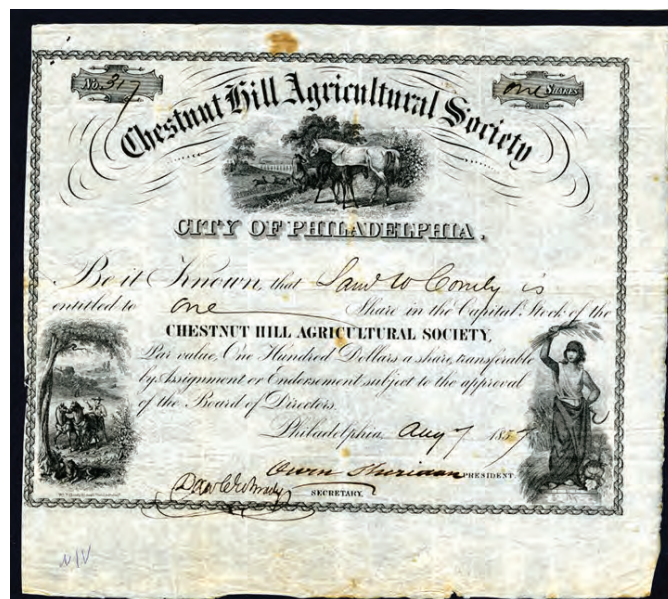 No. 317
one SHARES
Chestnut Hill Agricultural Society
CITY OF PHILADELPHIA.
Be it Known, that Saml W Comly is
entitled to one Share in the Capital Stock of the
CHESTNUT HILL AGRICULTURAL SOCIETY,
Par value, One Hundred Dollars a share, transferable
by Assignment or Endorsement subject to the approval
of the Board of Directors.
Philadelphia, Aug 7 1857
Owen Sheridan PRESIDENT.
SECRETARY.